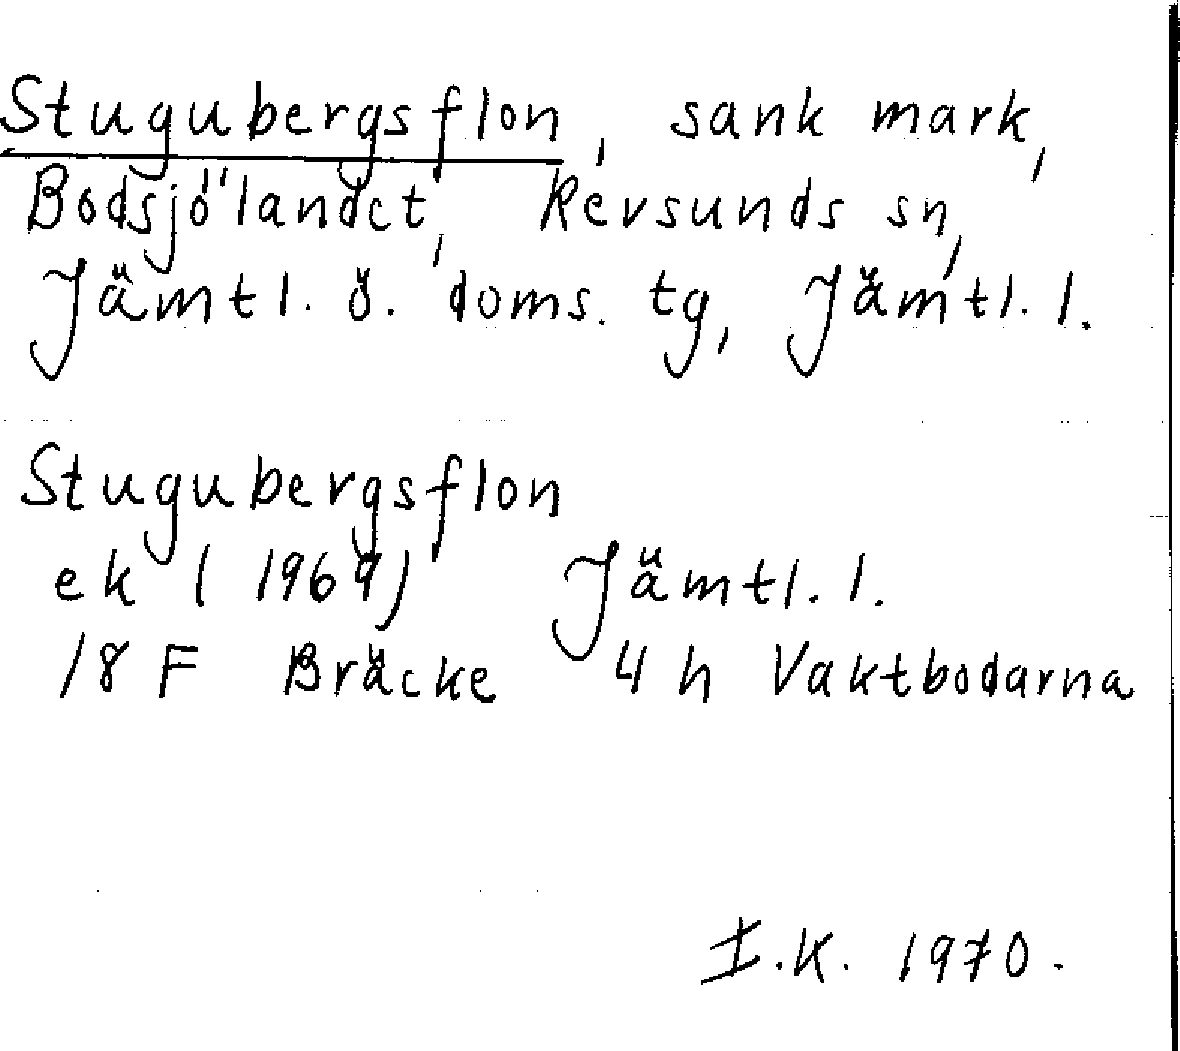 Stugubergsflon, sank mark,
Bodsjölandet, Revsunds sn,
Jämtl. ö. doms. tg, Jämtl. l.
Stugubergsflon
ek (1969) Jämtl. l.
18 F Bräcke 4 h Vaktbodarna
I.K. 1970.